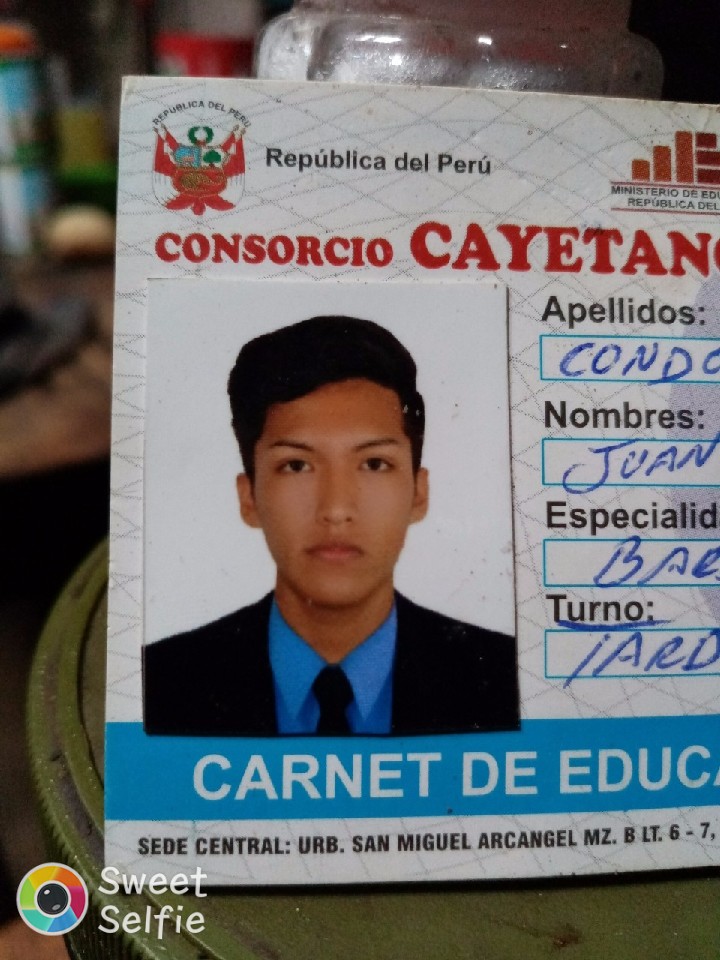 REPÚBLICA DEL PERÚ
República del Perú
MINISTERIO DE EDU
REPÚBLICA DEL
CONSORCIO CAYETANO
Apellidos:
CONDO
Nombres:
JUAN
Especialid
BAR
Turno:
TARD
CARNET DE EDUCA
SEDE CENTRAL: URB. SAN MIGUEL ARCANGEL MZ. B LT. 6 - 7,
Sweet
Selfie